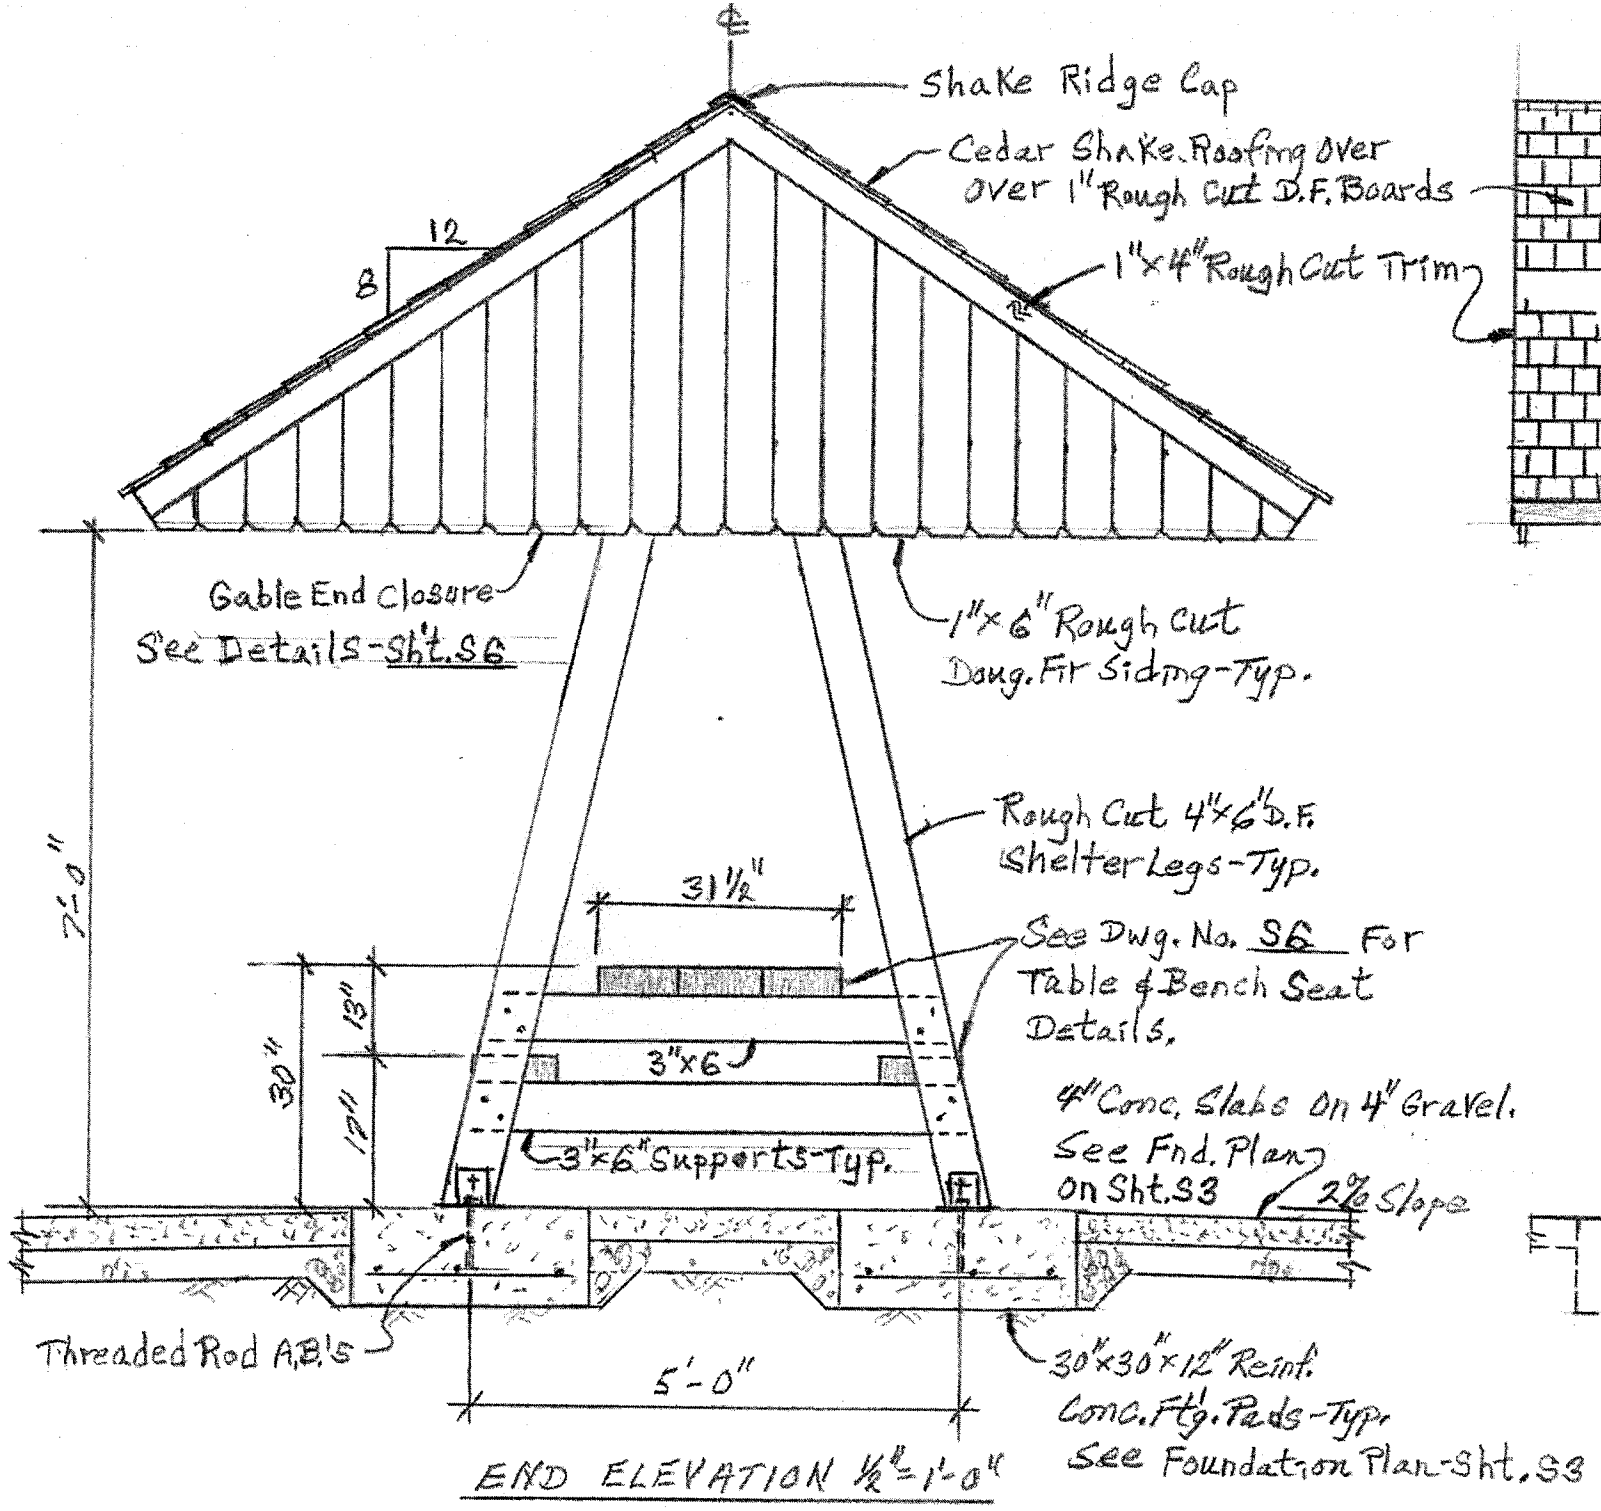 ℄
Shake Ridge Cap
Cedar Shake Roofing Over
Over 1" Rough Cut D.F. Boards
12
8
1"x4" Rough Cut Trim
Gable End Closure
See Details-Sht.S6
1"x6" Rough Cut
Doug. Fir Siding-Typ.
7'-0"
Rough Cut 4"x6" D.F.
Shelter Legs-Typ.
31 1/2"
See Dwg. No. S6 For
Table & Bench Seat
Details.
13"
30"
17"
3"x6
3"x6" Supports-Typ.
4" Conc. Slabs On 4" Gravel.
See Fnd. Plan
On Sht.S3
2% Slope
Threaded Rod A.B.'s
5'-0"
30"x30"x12" Reinf.
Conc. Ft'g. Pads-Typ.
See Foundation Plan-Sht.S3
END ELEVATION 1/2"=1'-0"